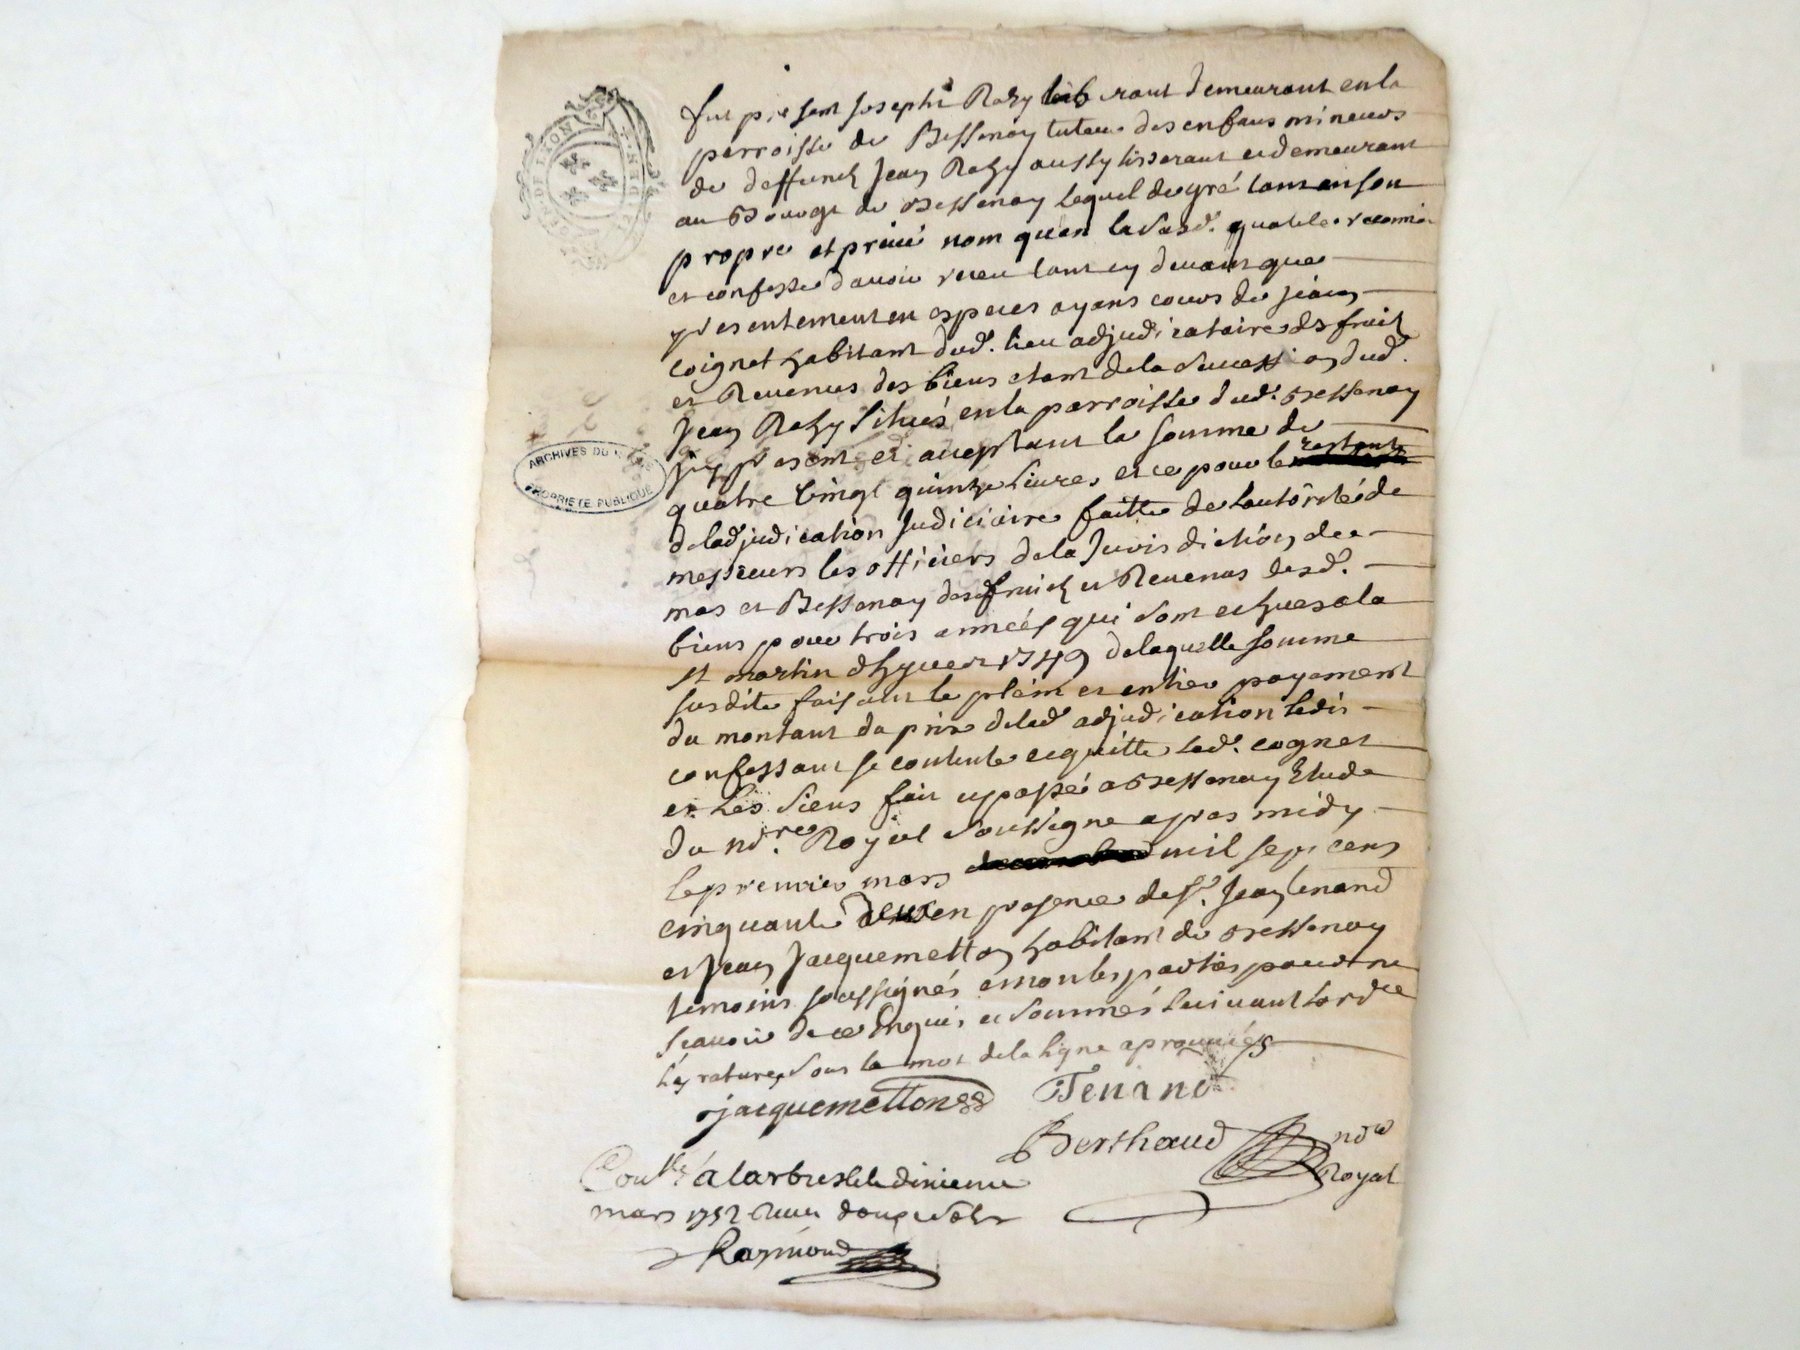 fut present Joseph Razy demeurant en la
parroisse de Bessenay tuteur des enfans mineurs
de deffunct Jean Razy aussy tisserant et demeurant
au Bourg de Bessenay lequel de gré tant en son
propre et privé nom qu'en la susd. qualité
et confesse d'avoir receu tant cy devant que
presentement en especes ayans cours de Jean
Coignet habitant dud. lieu adjudicataire des fruits
et Revenus des biens etant de la succession dud.
Jean Razy situés en la parroisse dud. Bessenay
present et acceptant la somme de
quatre vingt quinze livres et ce pour le restant
de ladjudication Judiciaire faitte de lautorité de
messieurs les officiers de la Jurisdiction de
mas et Bessenay des fruits et Revenus desd.
biens pour trois années qui sont echues a la
st martin dhyver 1749 de laquelle somme
susdite faisant le plein et entier payement
du montant du prix de lad. adjudication ledit
confessant se contente et quitte led. cognet
et les siens fait et passé a Bessenay Etude
du nore. Royal soussigné apres midy
le premier mars mil sept cent
cinquante deux en presence de sr. Jean
et Jean Jacquemetton habitant de Bessenay
temoins soussignés et non les parties pour ne
scavoir de ce Enquis et sommés suivant lordce
la rature sous le mot de la ligne aprouvée
Jacquemetton
Berthaud nore
Royal
Conllé a larbresle le dixieme
mars 1752 Receu douze sols
Raymond
GEN. DE LYON
ARCHIVES DU
PROPRIETE PUBLIQUE